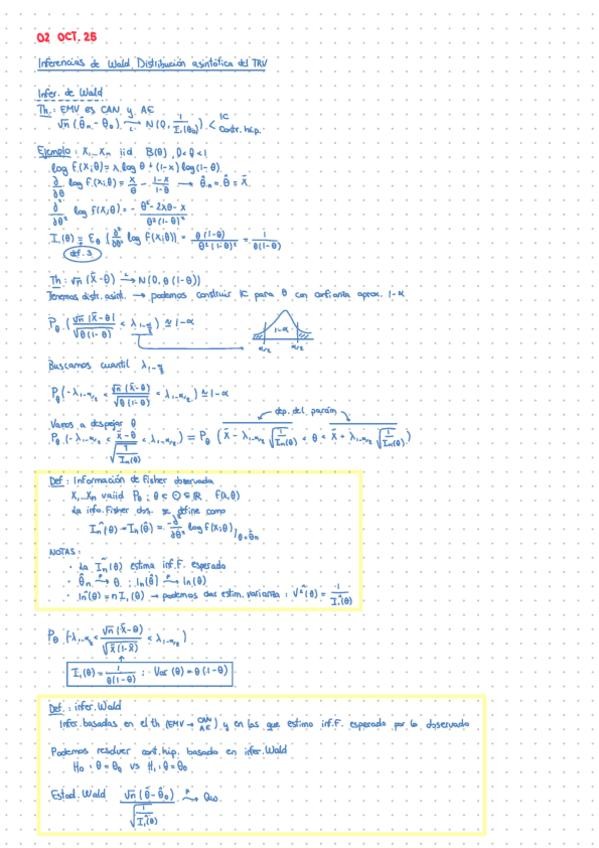 02 OCT. 25
Inferencias de Wald, Distribución asintótica del TRV
Infer. de Wald
Th.: EMV es CAN y AE
√n (θ̂n - θ0) →L N(0, 1/I1(θ0)) < IC
Contr. hip.
Ejemplo: X1...Xn iid B(θ), 0<θ<1
log f(x;θ) = x log θ + (1-x) log(1-θ)
∂/∂θ log f(x;θ) = x/θ - (1-x)/(1-θ) → θ̂n = θ̂ = x̄
∂²/∂θ² log f(x;θ) = - (θ² - 2xθ - x)/(θ²(1-θ)²)
I1(θ) = Eθ (∂²/∂θ² log f(x;θ)) = θ(1-θ)/(θ²(1-θ)²) = 1/(θ(1-θ))
def. 3
Th: √n (x̄ - θ) →L N(0, θ(1-θ))
Tenemos distr. asint. → podemos construir IC para θ con confianza aprox. 1-α
Pθ (√n |x̄-θ| / √(θ(1-θ)) < λ1-α/2) ≈ 1-α
1-α
α/2 α/2
Buscamos cuantil λ1-α/2
Pθ (-λ1-α/2 < √n (x̄-θ) / √(θ(1-θ)) < λ1-α/2) ≈ 1-α
dep. del parám
Vamos a despejar θ
Pθ (-λ1-α/2 < (x̄-θ) / √(1/In(θ)) < λ1-α/2) = Pθ (x̄ - λ1-α/2 √(1/In(θ)) < θ < x̄ + λ1-α/2 √(1/In(θ)))
Def: Información de Fisher observada
X1...Xn vaiid Pθ ; θ ∈ Θ ⊆ ℝ f(x,θ)
La info. Fisher obs. se define como
În(θ) = In(θ̂) = -∂²/∂θ² log f(x;θ) |θ=θ̂n
NOTAS:
· La În(θ) estima inf. F. esperada
· θ̂n →P θ ; In(θ̂) →P In(θ)
· În(θ) = n I1(θ) → podemos dar estim. varianza : V̂(θ) = 1/Î1(θ)
Pθ (-λ1-α/2 < √n (x̄-θ) / √(x̄(1-x̄)) < λ1-α/2)
I1(θ) = 1/(θ(1-θ)) ; Var (θ) = θ(1-θ)
Def.: infer. Wald
Infer. basadas en el th (EMV → CAN AE) y en las que estimo inf. F. esperada por la observada
Podemos resolver cont. hip. basado en infer. Wald
H0 : θ = θ0 vs H1 : θ = θ0
Estad. Wald √n (θ̂ - θ0) / √(1/Î1(θ))